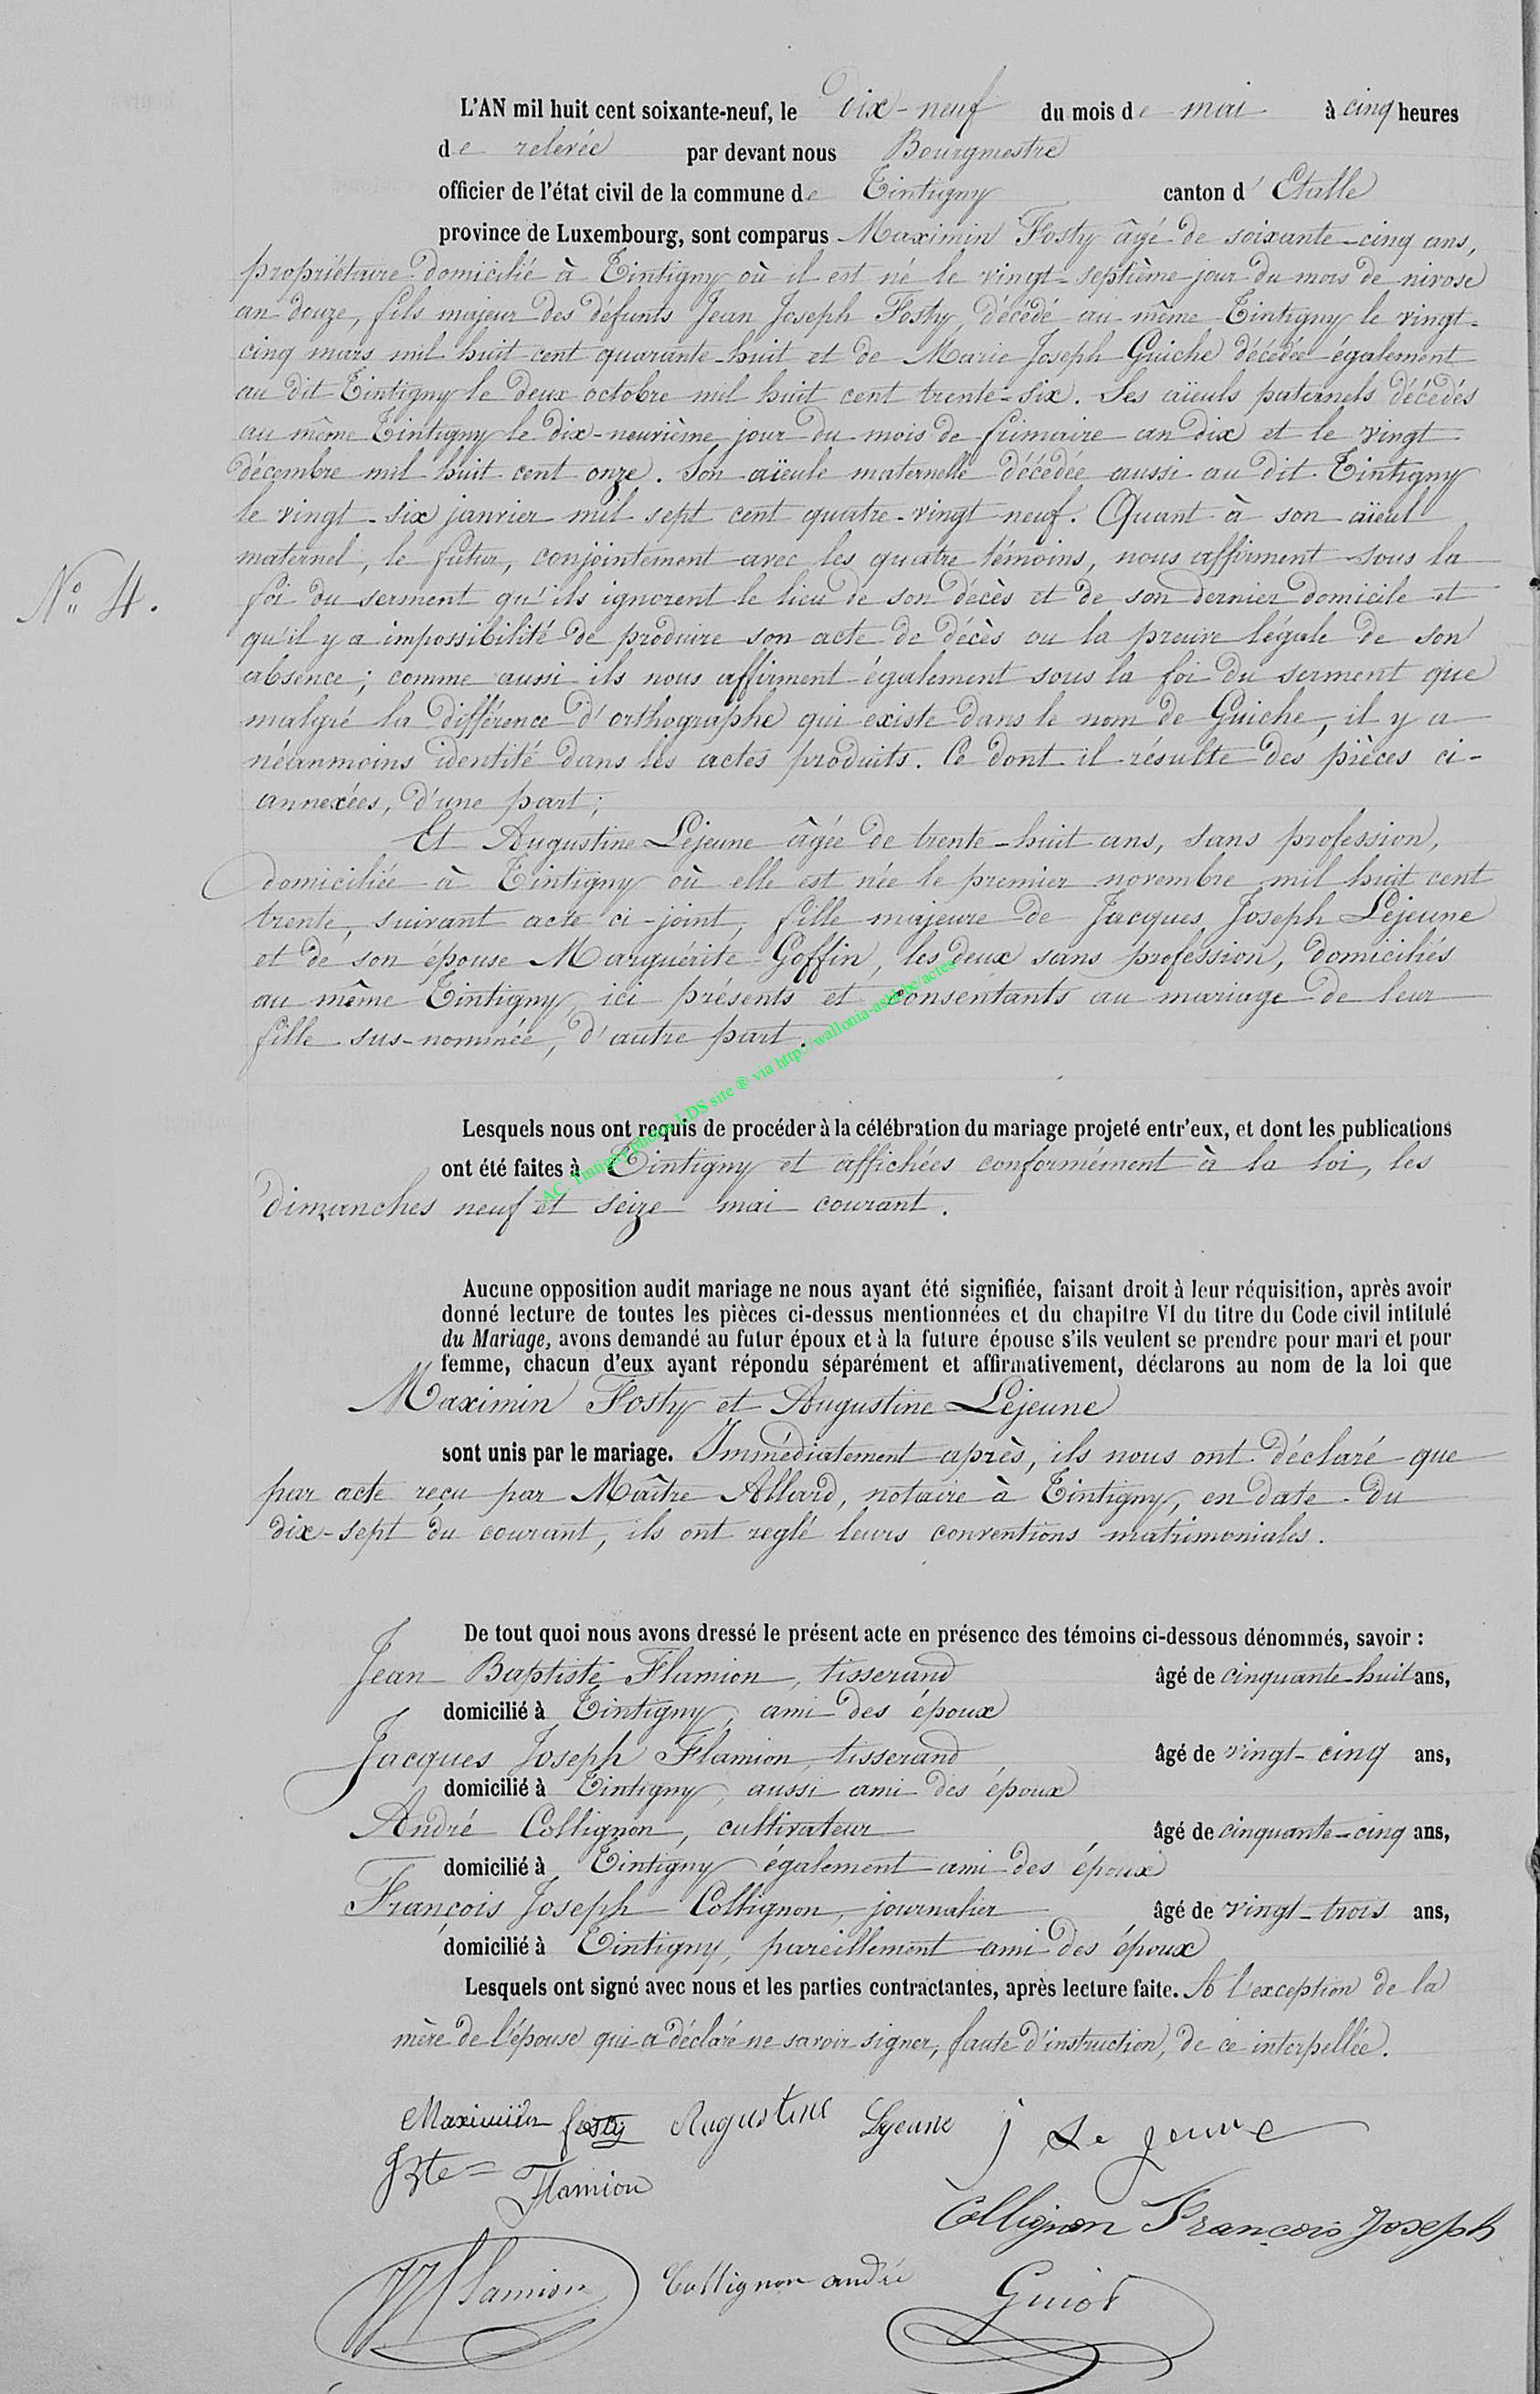 L'AN mil huit cent soixante-neuf, le Dix-neuf du mois de mai à cinq heures
de relevée par devant nous Bourgmestre
officier de l'état civil de la commune de Tintigny canton d'Etalle
province de Luxembourg, sont comparus Maximin Fosty âgé de soixante-cinq ans,
propriétaire domicilié à Tintigny où il est né le vingt-septième jour du mois de nivose
an douze, fils majeur des défunts Jean Joseph Fosty, décédé au même Tintigny le vingt-
cinq mars mil huit cent quarante-huit et de Marie Joseph Guiche décédée également
au dit Tintigny le deux octobre mil huit cent trente-six. Ses aïeuls paternels décédés
au même Tintigny le dix-neuvième jour du mois de frimaire an dix et le vingt
décembre mil huit cent onze. Son aïeule maternelle décédée aussi au dit Tintigny
le vingt-six janvier mil sept cent quatre-vingt neuf. Quant à son aïeul
maternel, le futur, conjointement avec les quatre témoins, nous affirment sous la
N° 4.
foi du serment qu'ils ignorent le lieu de son décès et de son dernier domicile et
qu'il y a impossibilité de produire son acte de décès ou la preuve légale de son
absence; comme aussi ils nous affirment également sous la foi du serment que
malgré la différence d'orthographe qui existe dans le nom de Guiche, il y a
néanmoins identité dans les actes produits. Ce dont il résulte des pièces ci-
annexées, d'une part;
Et Augustine Lejeune âgée de trente-huit ans, sans profession,
domiciliée à Tintigny où elle est née le premier novembre mil huit cent
trente, suivant acte ci-joint, fille majeure de Jacques Joseph Lejeune
et de son épouse Marguérite Goffin, les deux sans profession, domiciliés
au même Tintigny, ici présents et consentants au mariage de leur
fille sus-nominée, d'autre part.
AC. Tintigny photos LDS site ® via http://wallonia-asbl.be/actes
Lesquels nous ont requis de procéder à la célébration du mariage projeté entr'eux, et dont les publications
ont été faites à Tintigny et affichées conformément à la loi, les
dimanches neuf et seize mai courant.
Aucune opposition audit mariage ne nous ayant été signifiée, faisant droit à leur réquisition, après avoir
donné lecture de toutes les pièces ci-dessus mentionnées et du chapitre VI du titre du Code civil intitulé
du Mariage, avons demandé au futur époux et à la future épouse s'ils veulent se prendre pour mari et pour
femme, chacun d'eux ayant répondu séparément et affirmativement, déclarons au nom de la loi que
Maximin Fosty et Augustine Lejeune
sont unis par le mariage. Immédiatement après, ils nous ont déclaré que
par acte reçu par Maître Allard, notaire à Tintigny, en date du
dix-sept du courant, ils ont reglé leurs conventions matrimoniales.
De tout quoi nous avons dressé le présent acte en présence des témoins ci-dessous dénommés, savoir :
Jean Baptiste Flamion, tisserand âgé de cinquante-huit ans,
domicilié à Tintigny, ami des époux
Jacques Joseph Flamion, tisserand âgé de vingt-cinq ans,
domicilié à Tintigny, aussi ami des époux
André Collignon, cultivateur âgé de cinquante-cinq ans,
domicilié à Tintigny également ami des époux
François Joseph Collignon, journalier âgé de vingt-trois ans,
domicilié à Tintigny, pareillement ami des époux
Lesquels ont signé avec nous et les parties contractantes, après lecture faite. A l'exception de la
mère de l'épouse qui a déclaré ne savoir signer, faute d'instruction, de ce interpellée.
Maximin fosty Augustine Lejeune j Le jeune
J Bte Flamion
Collignon François Joseph
JJ Flamion Collignon andré Guiot